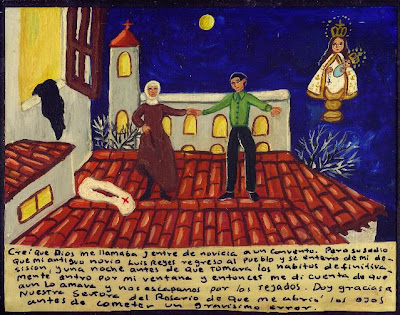 Creí que Dios me llamaba y entre de novicia a un convento. Pero susedio
que mi antiguo novio Luis Reyes regreso al pueblo y se entero de mi de-
sision, y una noche antes de que tomara los habitos definitiva-
mente entro por mi ventana y entonces me di cuenta de que
aun lo amava y nos escapamos por los tejados. Doy gracias a
Nuestra Señora del Rosario de que me abrió los ojos
antes de cometer un gravisimo error.